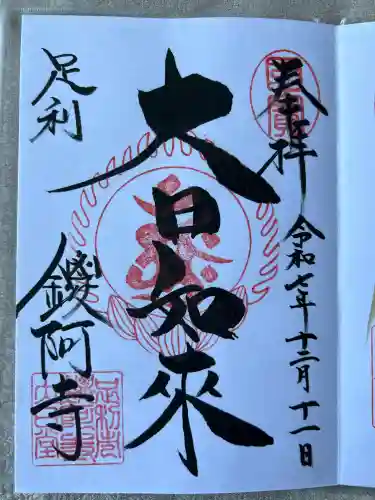 奉拝
令和七年十二月十一日
大日如來
足利
鑁阿寺